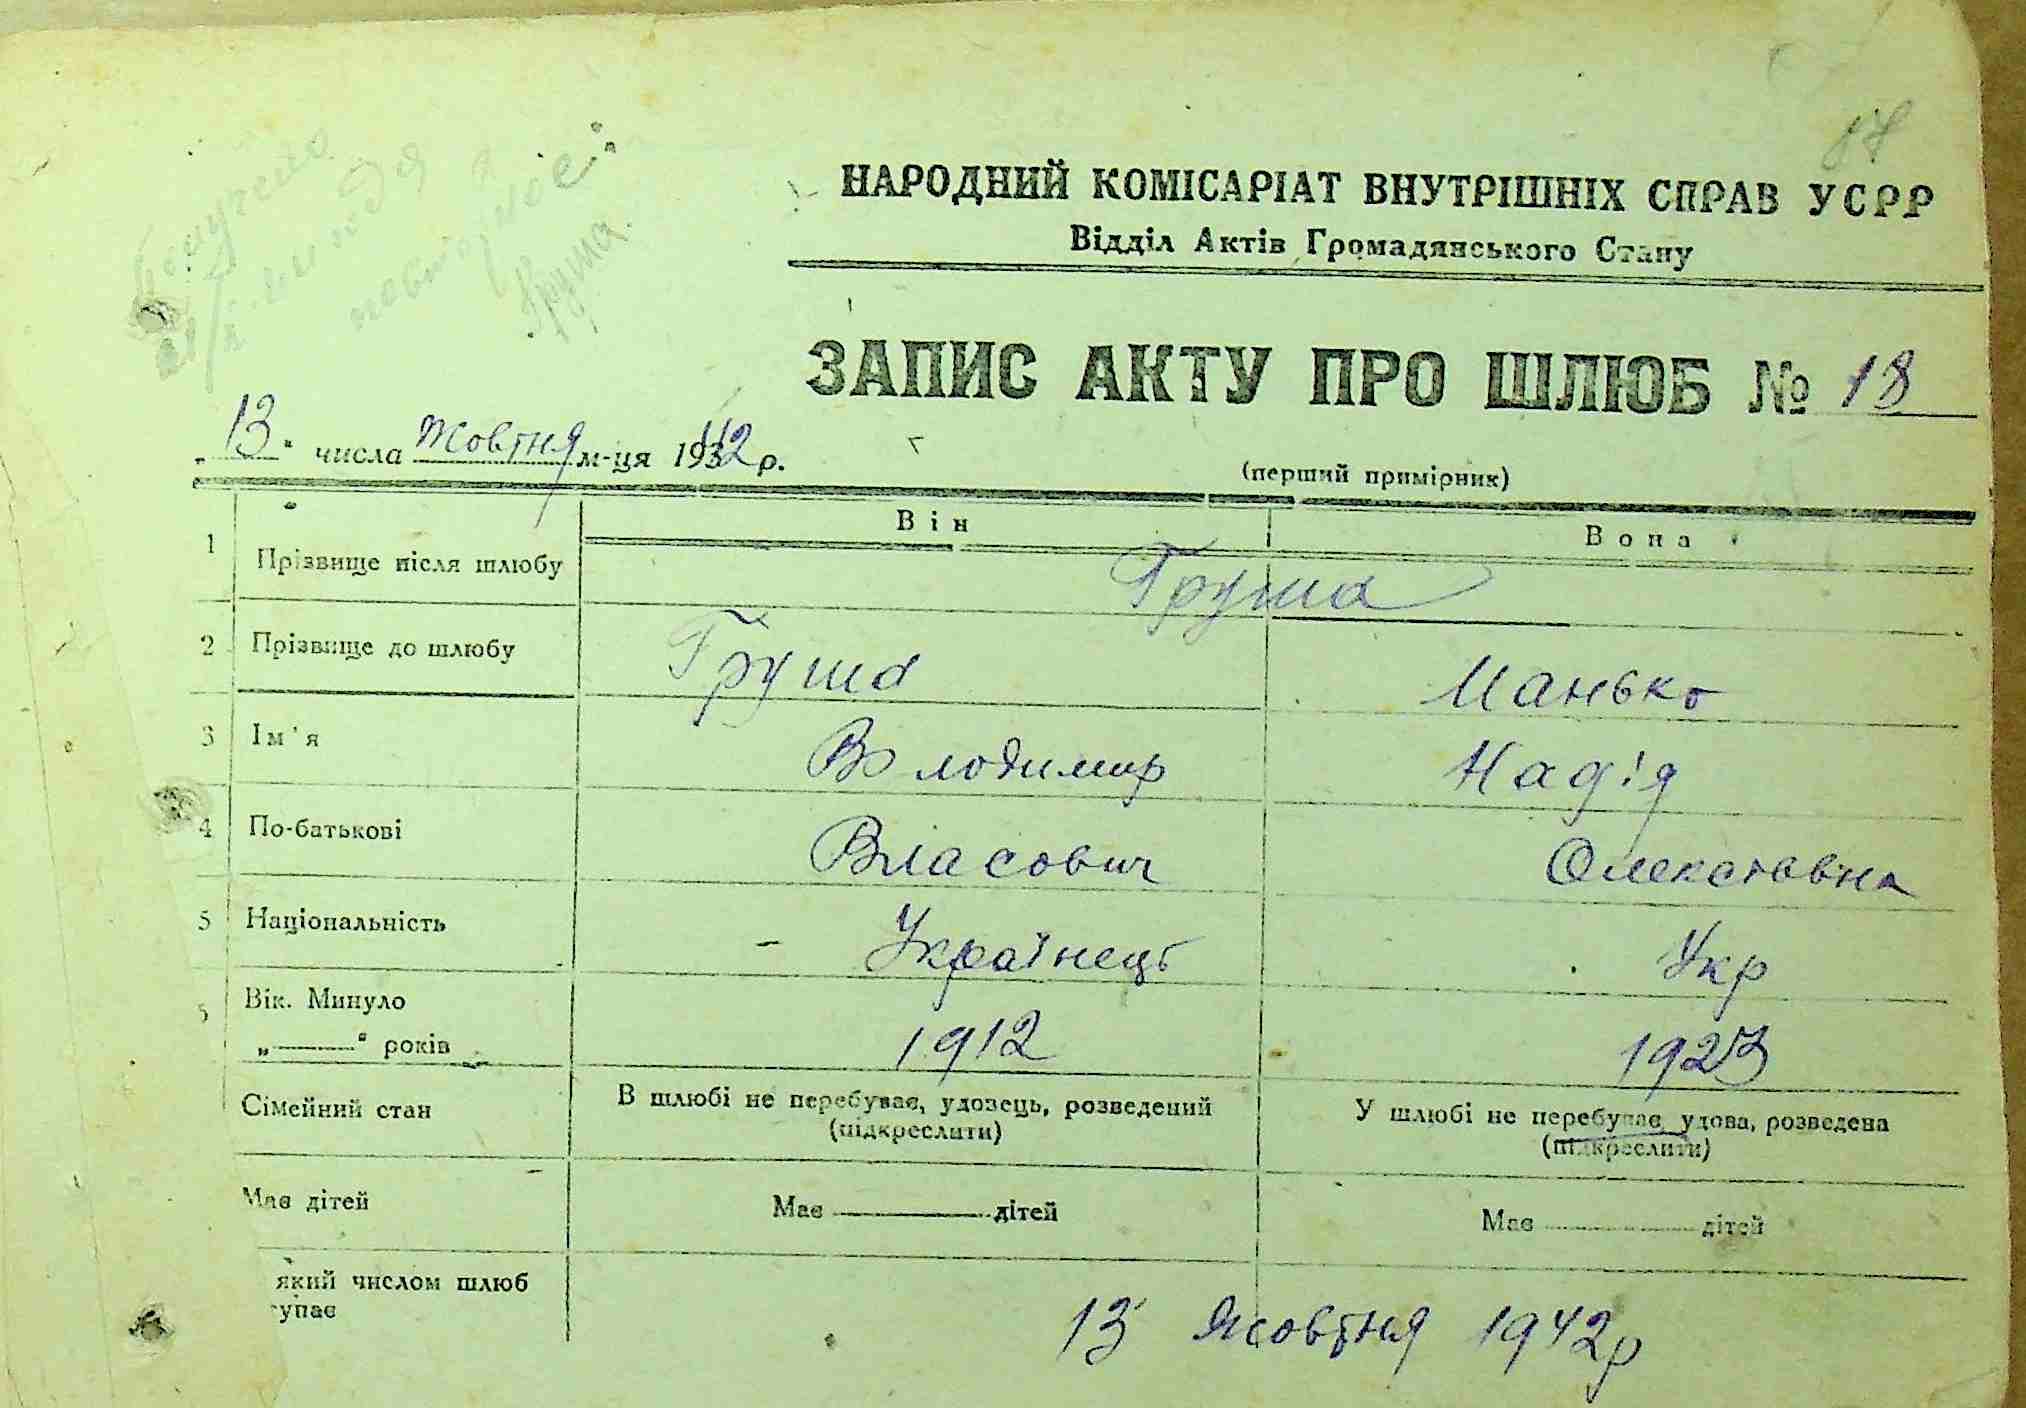 Груша.
НАРОДНИЙ КОМІСАРІАТ ВНУТРІШНІХ СПРАВ УСРР
Відділ Актів Громадянського Стану
ЗАПИС АКТУ ПРО ШЛЮБ № 18
„13" числа Жовтня м-ця 1942 р.
(перший примірник)
Він Вона
1 Прізвище після шлюбу Груша
2 Прізвище до шлюбу Груша Манько
3 Ім'я Володимир Надія
4 По-батькові Власович
5 Національність Українець Укр
Вік. Минуло
„———" років 1912 1923
Сімейний стан В шлюбі не перебуває, удовець, розведений У шлюбі не перебуває, удова, розведена
(підкреслити) (підкреслити)
Має дітей Має ——— дітей Має ——— дітей
який числом шлюб
13 Жовтня 1942р